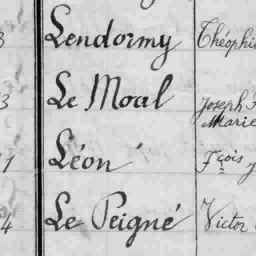 3 Lendormy Théophi
3 Le Moal Joseph
Marie
1 Léon Fçois J
4 Le Peigné Victor